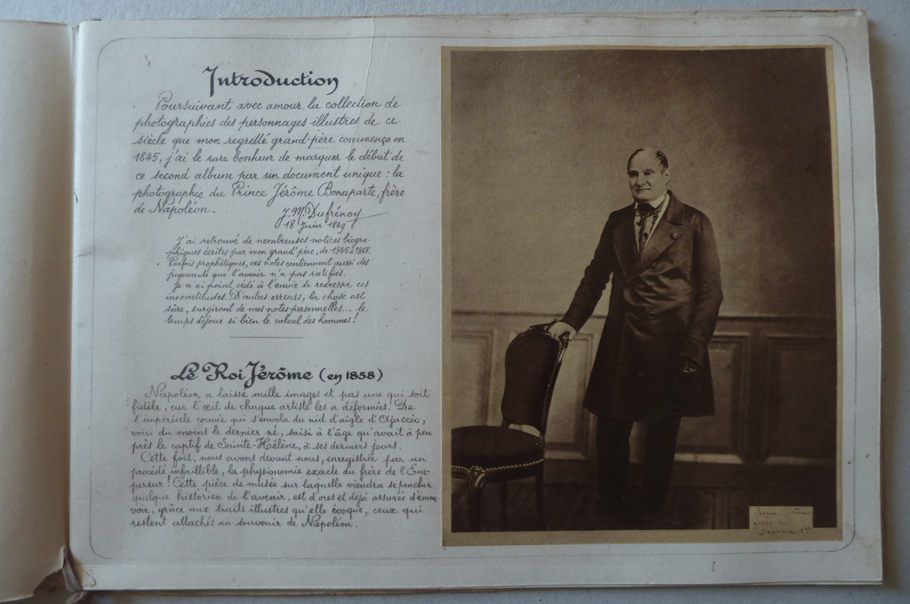 Introduction
Poursuivant avec amour la collection de
photographies des personnages illustres de ce
siècle que mon regretté grand-père commença en
1845, j'ai le rare bonheur de marquer le début de
ce second album par un document unique : la
photographie du Prince Jérôme Bonaparte, frère
de Napoléon.
J. M. Dufrénoy
18 Juin 1869
J'ai retrouvé de nombreuses notices biogra-
phiques écrites par mon grand'père, de 1845 à 1868.
Parfois prophétiques, ces notes contiennent aussi des
jugements que l'avenir n'a pas ratifiés.
Je n'ai point cédé à l'envie de redresser ces
inexactitudes. D'autres erreurs, la chose est
sûre, surgiront de mes notes personnelles... le
temps déjoue si bien le calcul des hommes !
Le Roi Jérôme (en 1858)
Napoléon a laissé mille images et pas une qui soit
fidèle, car l'œil de chaque artiste les a déformés. De
l'impériale couvée qui s'envola du nid d'aigle d'Ajaccio,
voici du moins le dernier né, saisi à l'âge qu'avait à peu
près le captif de Sainte-Hélène, à ses derniers jours.
Cette fois, nous avons devant nous, enregistrée par un
procédé infaillible, la physionomie exacte du frère de l'Em-
pereur ! Cette pièce de musée sur laquelle viendra se pencher
quelque historien de l'avenir, est d'ores et déjà assurée d'émou-
voir, grâce aux traits illustres qu'elle évoque, ceux qui
restent attachés au souvenir de Napoléon.